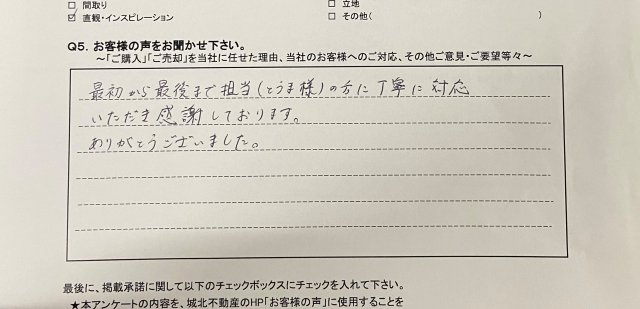 □ 間取り
□ 立地
☑ 直観・インスピレーション
□ その他( )
Q5. お客様の声をお聞かせ下さい。
～「ご購入」「ご売却」を当社に任せた理由、当社のお客様へのご対応、その他ご意見・ご要望等々～
最初から最後まで担当(とうま様)の方に丁寧に対応
いただき感謝しております。
ありがとうございました。
最後に、掲載承諾に関して以下のチェックボックスにチェックを入れて下さい。
★本アンケートの内容を、城北不動産のHP「お客様の声」に使用することを